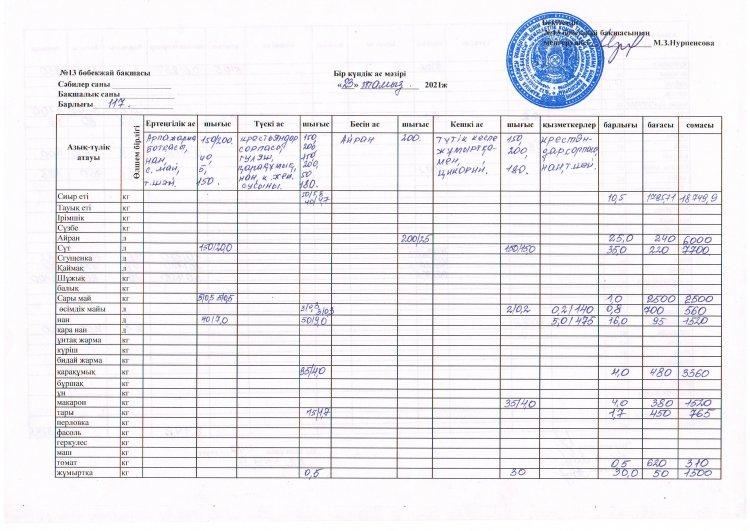 Бекітемін
№13 бөбекжай бақшасының
меңгерушісі М.З.Нурпеисова
№13 бөбекжай бақшасы
Сәбилер саны
Бақшалық саны
Барлығы 117.
Бір күндік ас мәзірі
«23» тамыз 2021ж
Азық-түлік атауы Өлшем бірлігі Ертеңгілік ас шығыс Түскі ас шығыс Бесін ас шығыс Кешкі ас шығыс қызметкерлер барлығы бағасы сомасы
Арпа жарма ботқасы, нан, с. май, т.шәй. 150/200 40, 5, 150. крестьяндар сорпасы, гуляш, қарақұмық, нан, к. жем. сусыны. 150, 200 150 200, 50 180. Айран 200. түтік кеспе жұмыртқамен, цикорий. 150, 200, 180. крестьяндар сорпасы, нан, т.шәй.
Сиыр еті кг 10,5 1785,71 18749,9
Тауық еті кг
Ірімшік кг
Сүзбе кг
Айран л 200/25 25,0 240 6000
Сүт л 150/200 150/150 35,0 220 7700
Сгущенка л
Қаймақ кг
Шұжық кг
балық кг
Сары май кг 5/0,5 5/0,5 1,0 2500 2500
өсімдік майы л 3/0,3 3/0,3 2/0,2 0,2/140 0,8 700 560
нан л 40/7,0 50/9,0 5,0/475 16,0 95 1520
қара нан л
ұнтақ жарма кг
күріш кг
бидай жарма кг
қарақұмық кг 35/4,0 4,0 480 3360
бұршақ кг
ұн кг
макарон кг 35/40 4,0 380 1520
тары кг 15/1,7 1,7 450 765
перловка кг
фасоль кг
геркулес кг
маш кг
томат кг 0,5 620 310
жұмыртка кг 0,5 30 30,0 50 1500